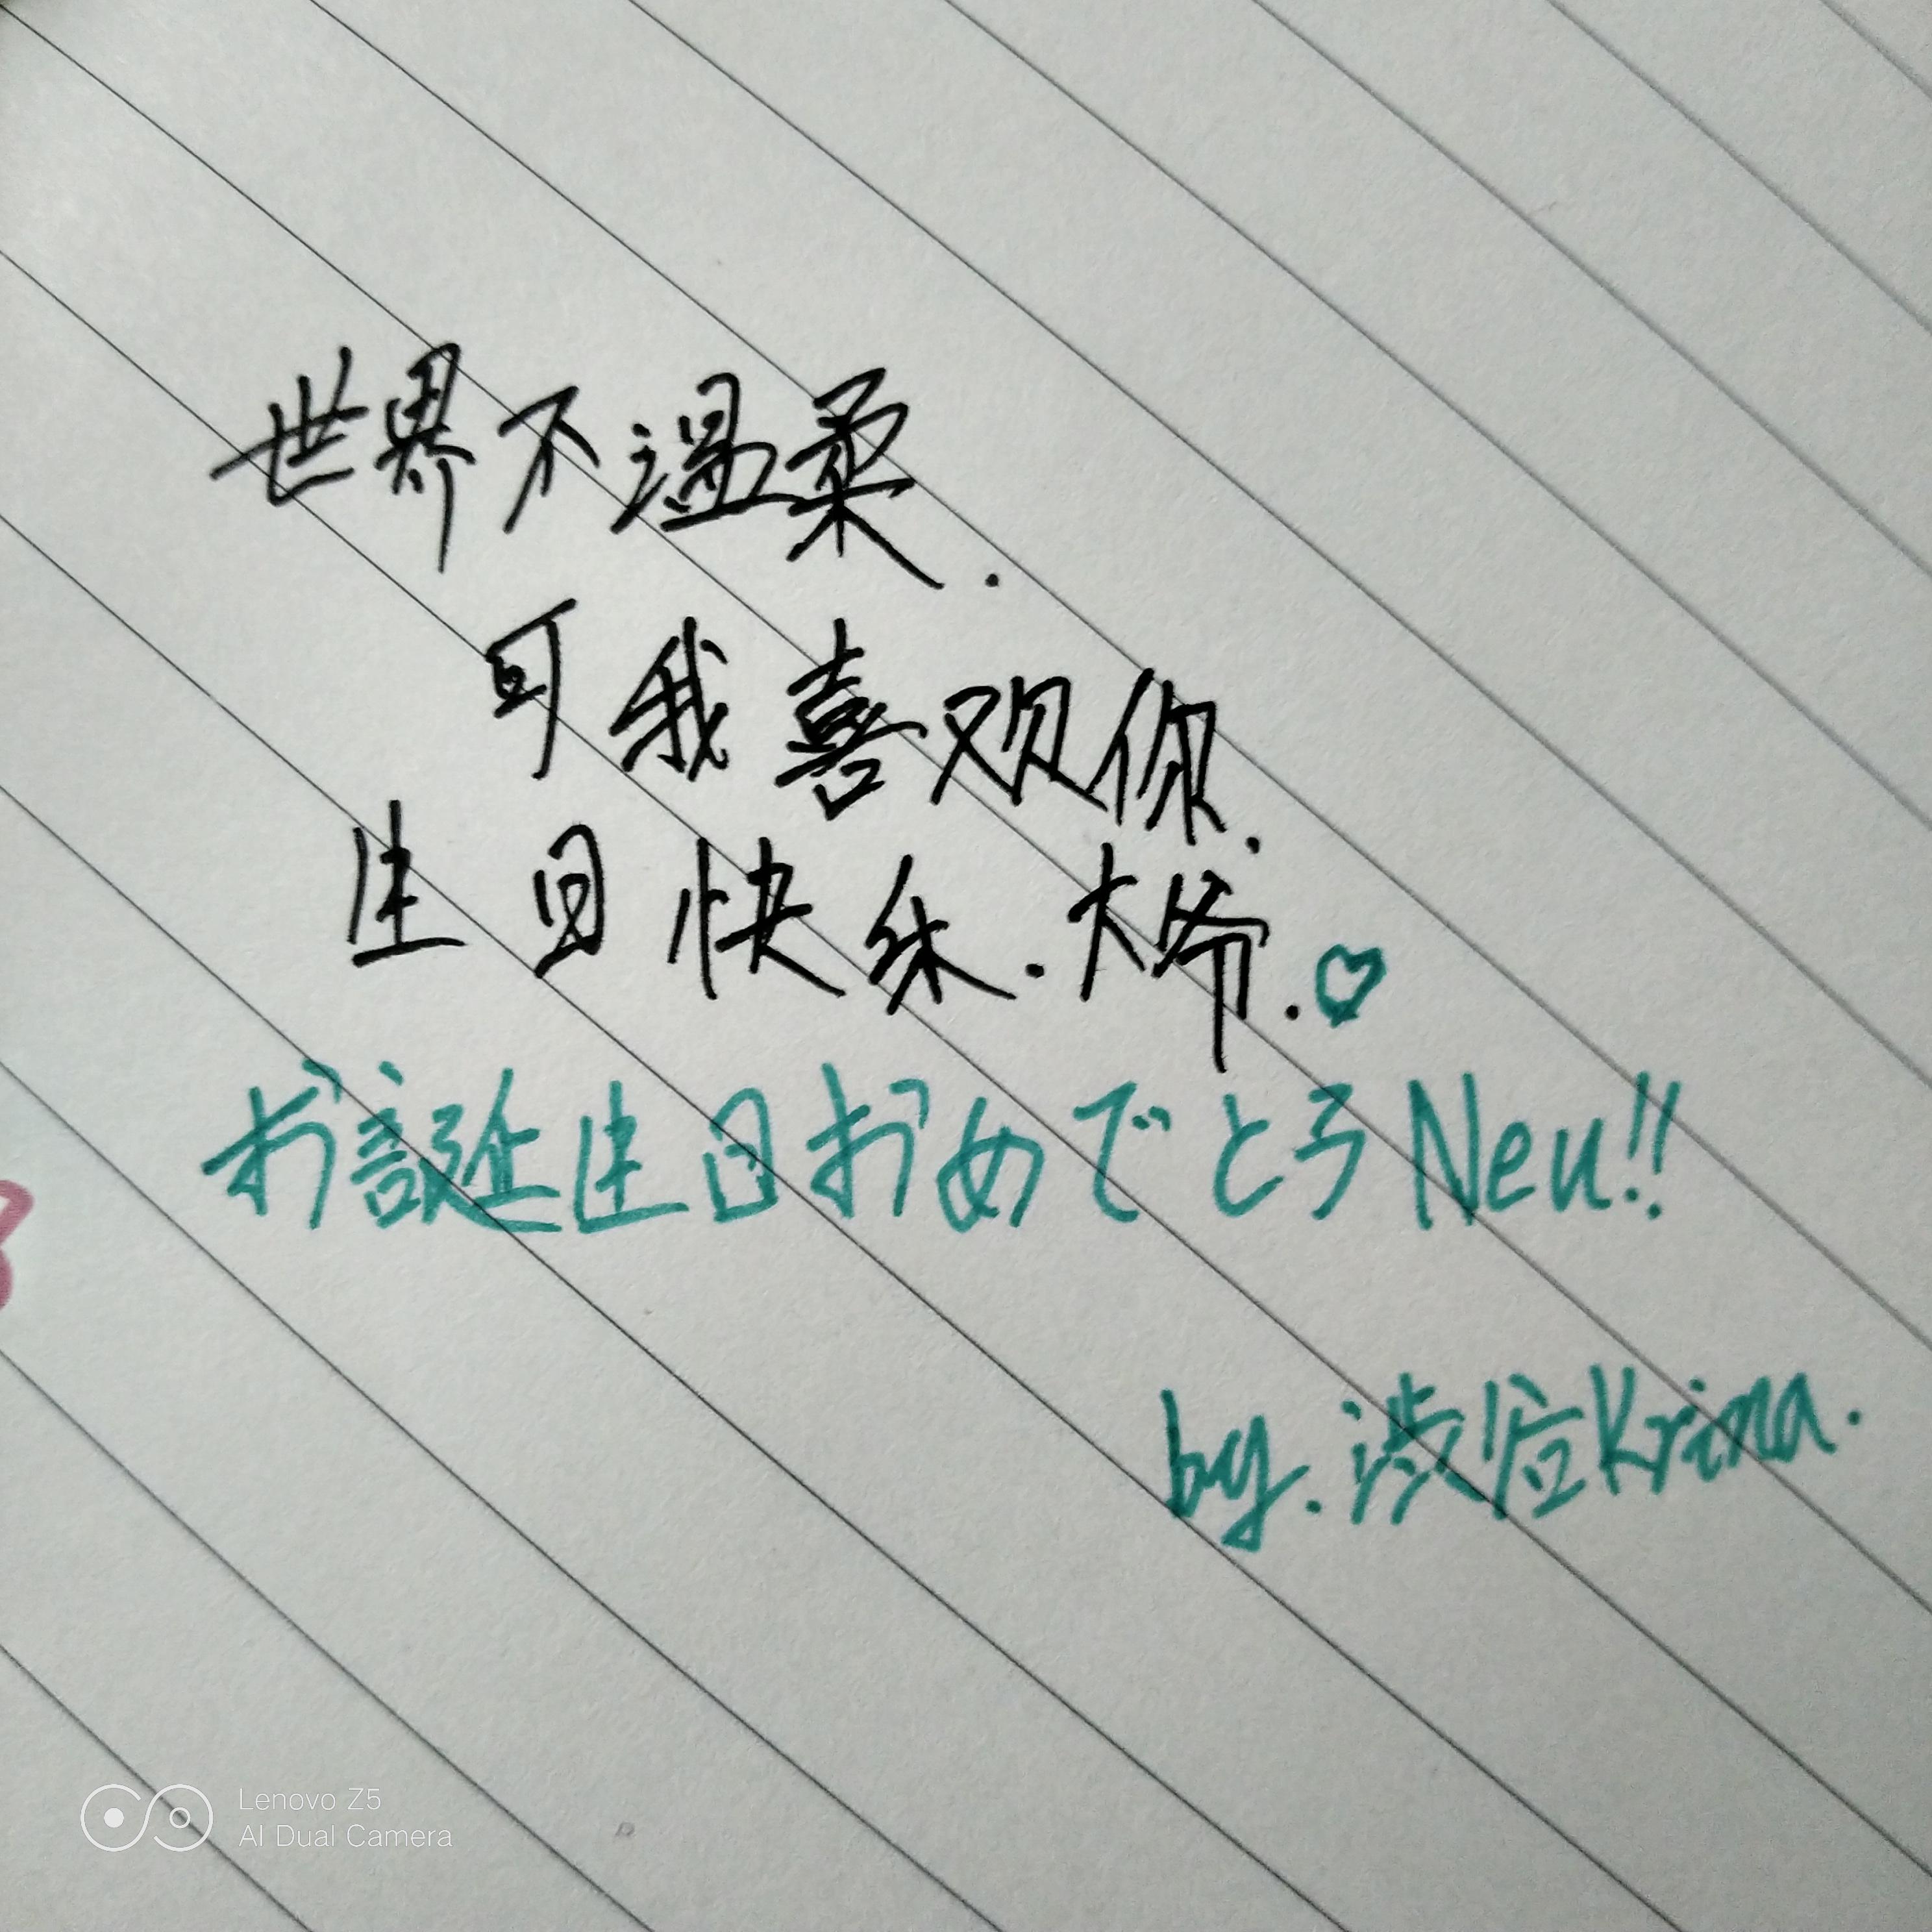 世界不温柔.
可我喜欢你.
生日快乐.大爷.♡
お誕生日おめでとうNeu!!
by.渋谷Krina.
Lenovo Z5
AI Dual Camera